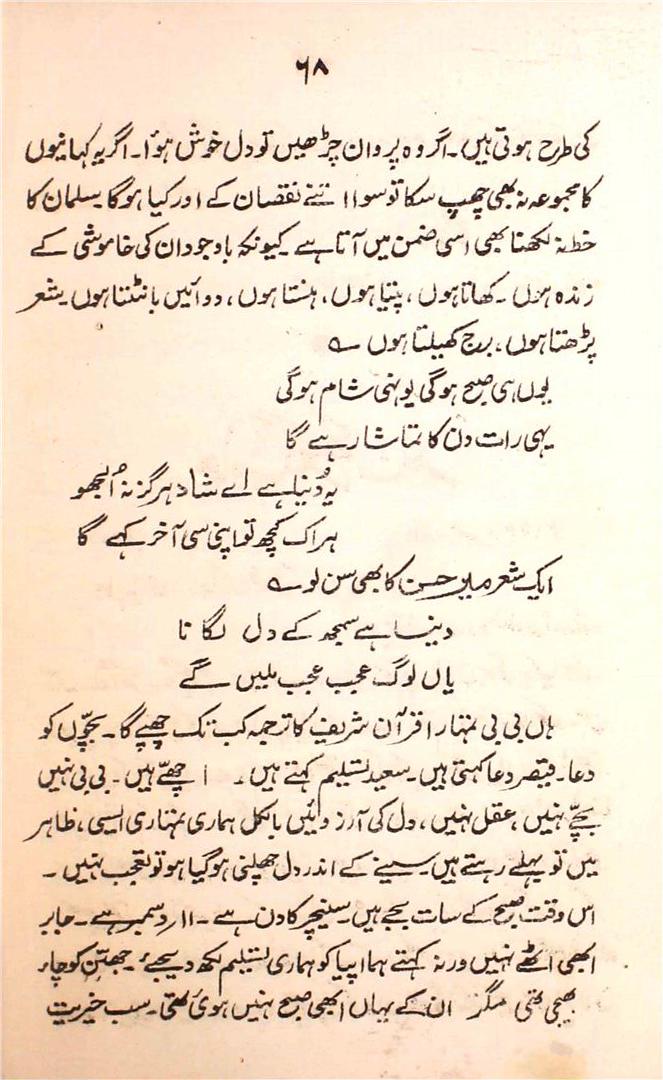 ۶۸
کی طرح ہوتی ہیں۔ اگر وہ پروان چڑھیں تو دل خوش ہوٴا۔ اگر یہ کہانیوں
کا مجموعہ نہ بھی چھپ سکا تو سوا اتنے نقصان کے اور کیا ہوگا۔ سلمان کا
خط نہ لکھنا بھی اسی ضمن میں آتا ہے۔ کیونکہ باوجود ان کی خاموشی کے
زندہ ہوں۔ کھاتا ہوں، پیتا ہوں، ہنستا ہوں، دوائیں بانٹتا ہوں۔ شعر
پڑھتا ہوں، برج کھیلتا ہوں ؎
یوں ہی صبح ہوگی یونہی شام ہوگی
یہی رات دن کا تماشا رہے گا
یہ دُنیا ہے اے شاد ہرگز نہ اُلجھو
ہر اک کچھ تو اپنی سی آخر کہے گا
ایک شعر میر حسن کا بھی سن لو ؎
دنیا ہے سمجھ کے دل لگانا
یاں لوگ عجب عجب ملیں گے
ہاں بی بی تمہارا قرآن شریف کا ترجمہ کب تک چھپے گا۔ بچّوں کو
دعا۔ قیصر دعا کہتی ہیں۔ سعید تسلیم کہتے ہیں۔ اچھّے ہیں۔ بی بی نہیں
بچّے نہیں، عقل نہیں، دل کی آرزوئیں بالکل ہماری تمہاری ایسی، ظاہر
میں تو پہلے رہتے ہیں۔ سینے کے اندر دل چھلنی ہوگیا ہو تو تعجب نہیں۔
اس وقت صبح کے سات بجے ہیں۔ سنیچر کا دن ہے۔ ۱۱ دسمبر ہے۔ جابر
ابھی اٹھے نہیں ورنہ کہتے ہما اپیا کو ہماری تسلیم لکھ دیجیے۔ چھبّن کو چاء
بھیجی تھی مگر ان کے یہاں ابھی صبح نہیں ہوئی تھی۔ سب خیریت